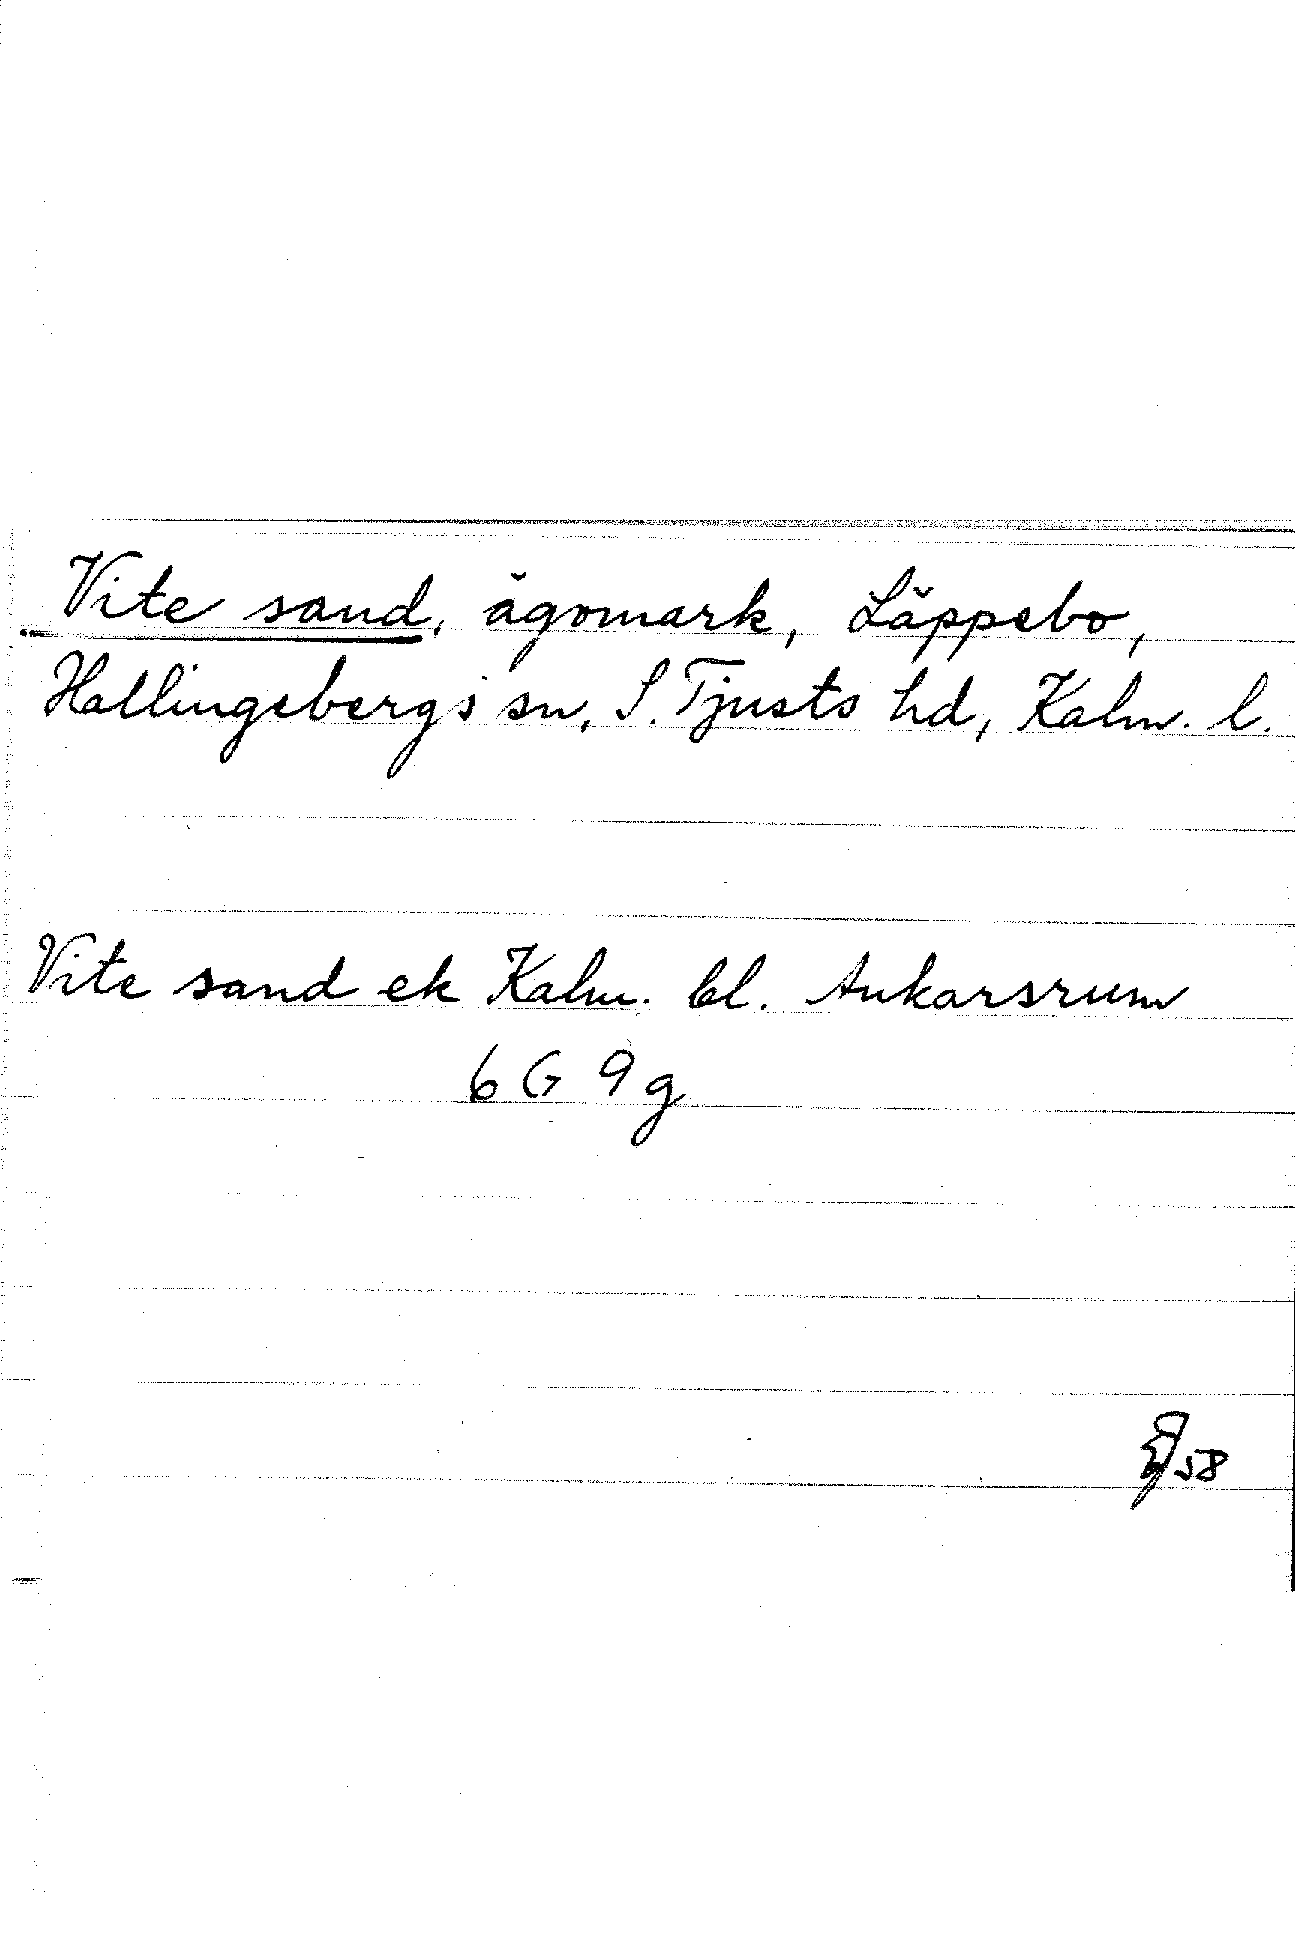 Vite sand, ägomark, Läppebo,
Hallingebergs sn, S. Tjusts hd, Kalm. l.
Vite sand ek Kalm. bl. Ankarsrum
6 G 9 g
58